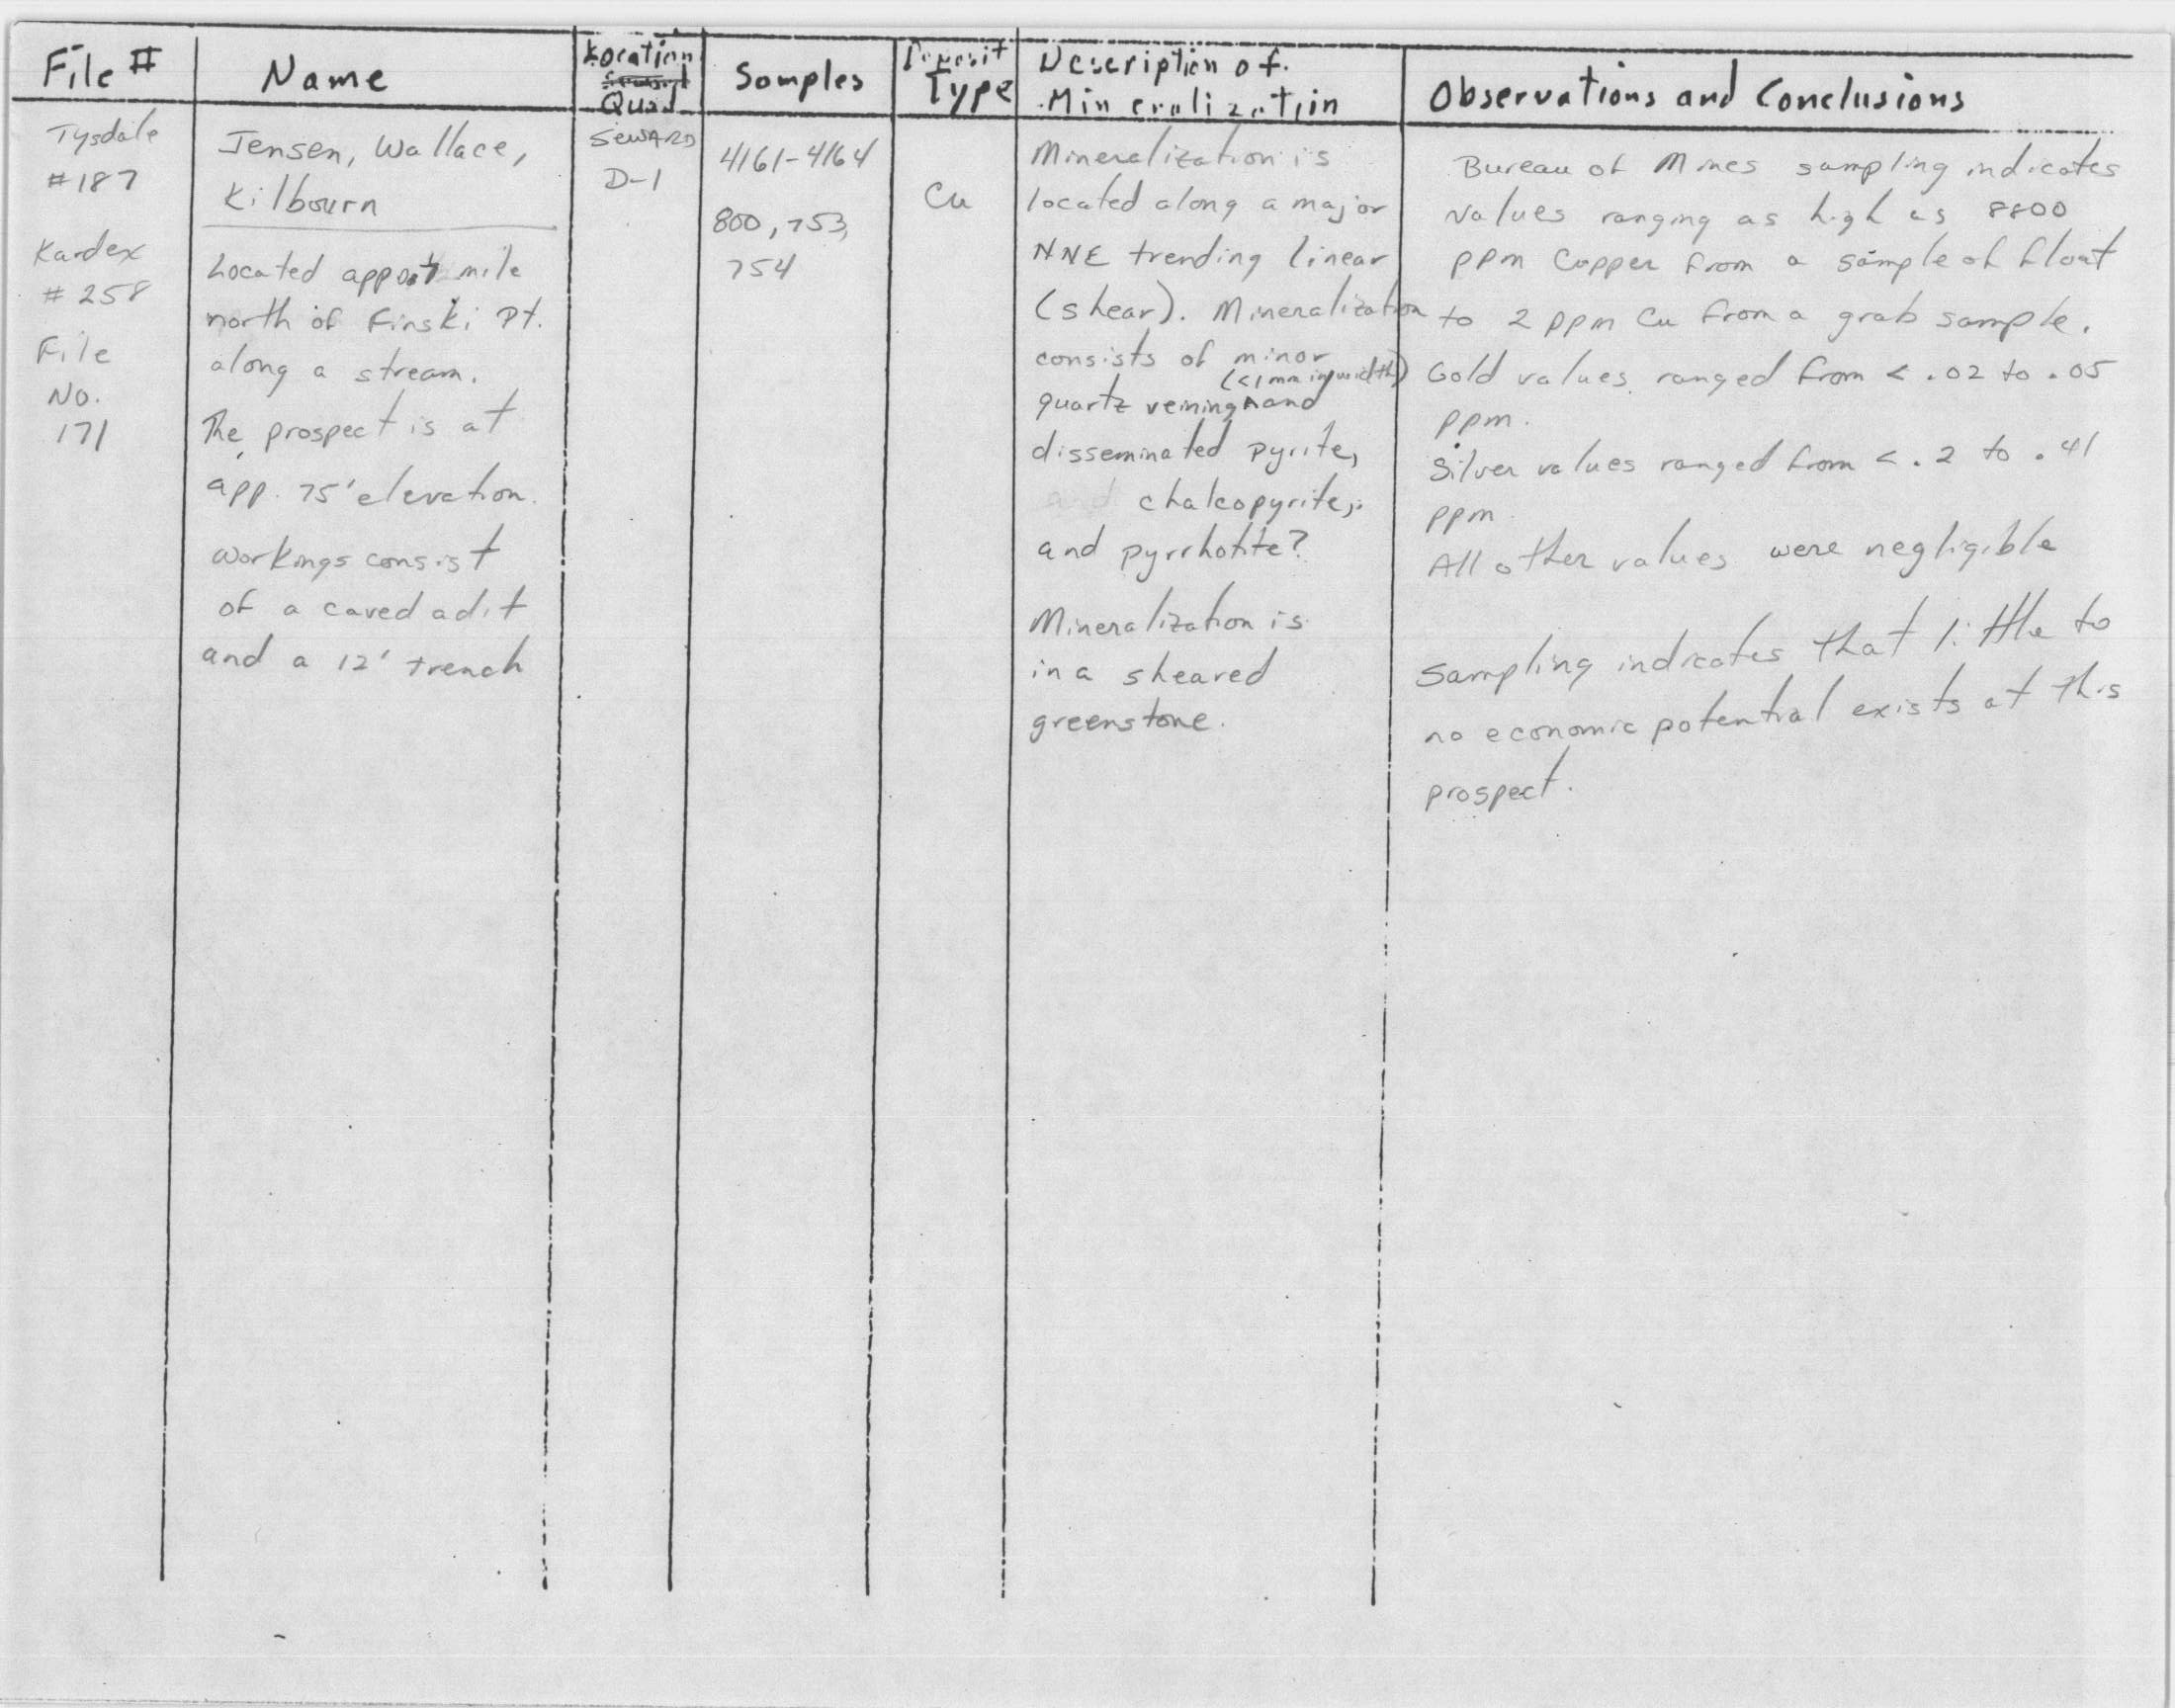 File #
Tysdale
#187
Kardex
#258
File
No.
171
Name
Jensen, Wallace,
Kilbourn
Located app mile
north of Finski Pt.
along a stream.
The prospect is at
app. 75' elevation.
Workings consist
of a caved adit
and a 12' trench
Location
Quad
SEWARD
D-1
Samples
4161-4164
800, 753,
754
Deposit
Type
Cu
Description of
Mineralization
Mineralization is
located along a major
NNE trending linear
(shear). Mineralization
consists of minor
(<1mm in width)
quartz veining ^ and
disseminated pyrite,
and chalcopyrite,
and pyrrhotite?
Mineralization is
in a sheared
greenstone.
Observations and Conclusions
Bureau of Mines sampling indicates
values ranging as high as 8800
ppm Copper from a sample of float
to 2 ppm Cu from a grab sample.
Gold values ranged from < .02 to .05
ppm.
Silver values ranged from < .2 to .41
ppm
All other values were negligible
Sampling indicates that little to
no economic potential exists at this
prospect.